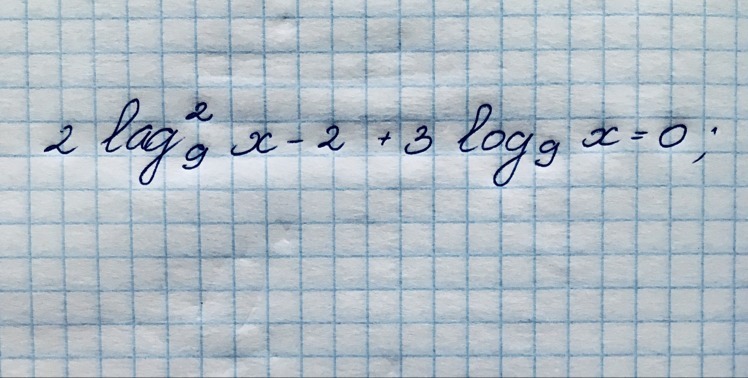 2 lag₉² x - 2 + 3 log₉ x = 0;